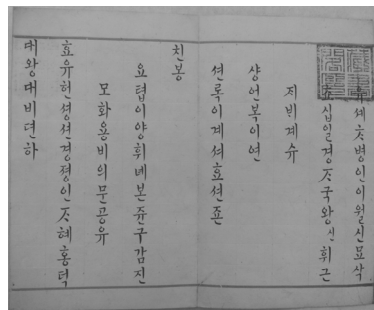 유세ᄎᆞ병인이월신묘삭
초십일경ᄌᆞ국왕신휘근
저빈계슈
샹언복이연
션록이계셔효션죤
친봉
요텹이양휘 본쥰구감진
모화용비의문공유
효유헌셩션경졍인ᄌᆞ혜홍덕
대왕대비뎐하